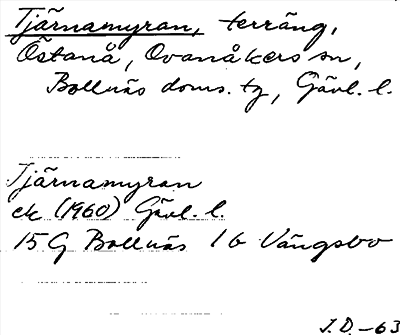 Tjärnamyran, terräng,
Östanå, Ovanåkers sn,
Bollnäs doms. tg, Gävl. l.
Tjärnamyran
ek (1960) Gävl. l.
15 G Bollnäs 1 b Vängsbo
J. D. -63